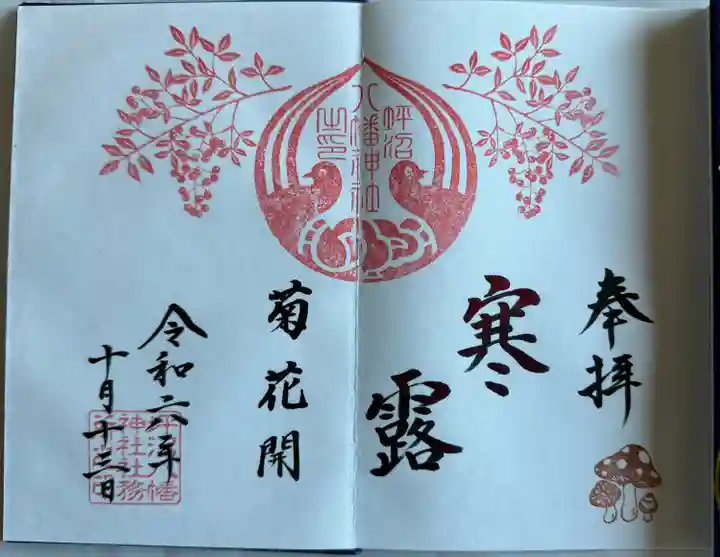 奉拝
寒露
菊花開
令和六年
十月十三日
坪沼
八幡神社
之印
坪沼八幡
神社社務
所之印